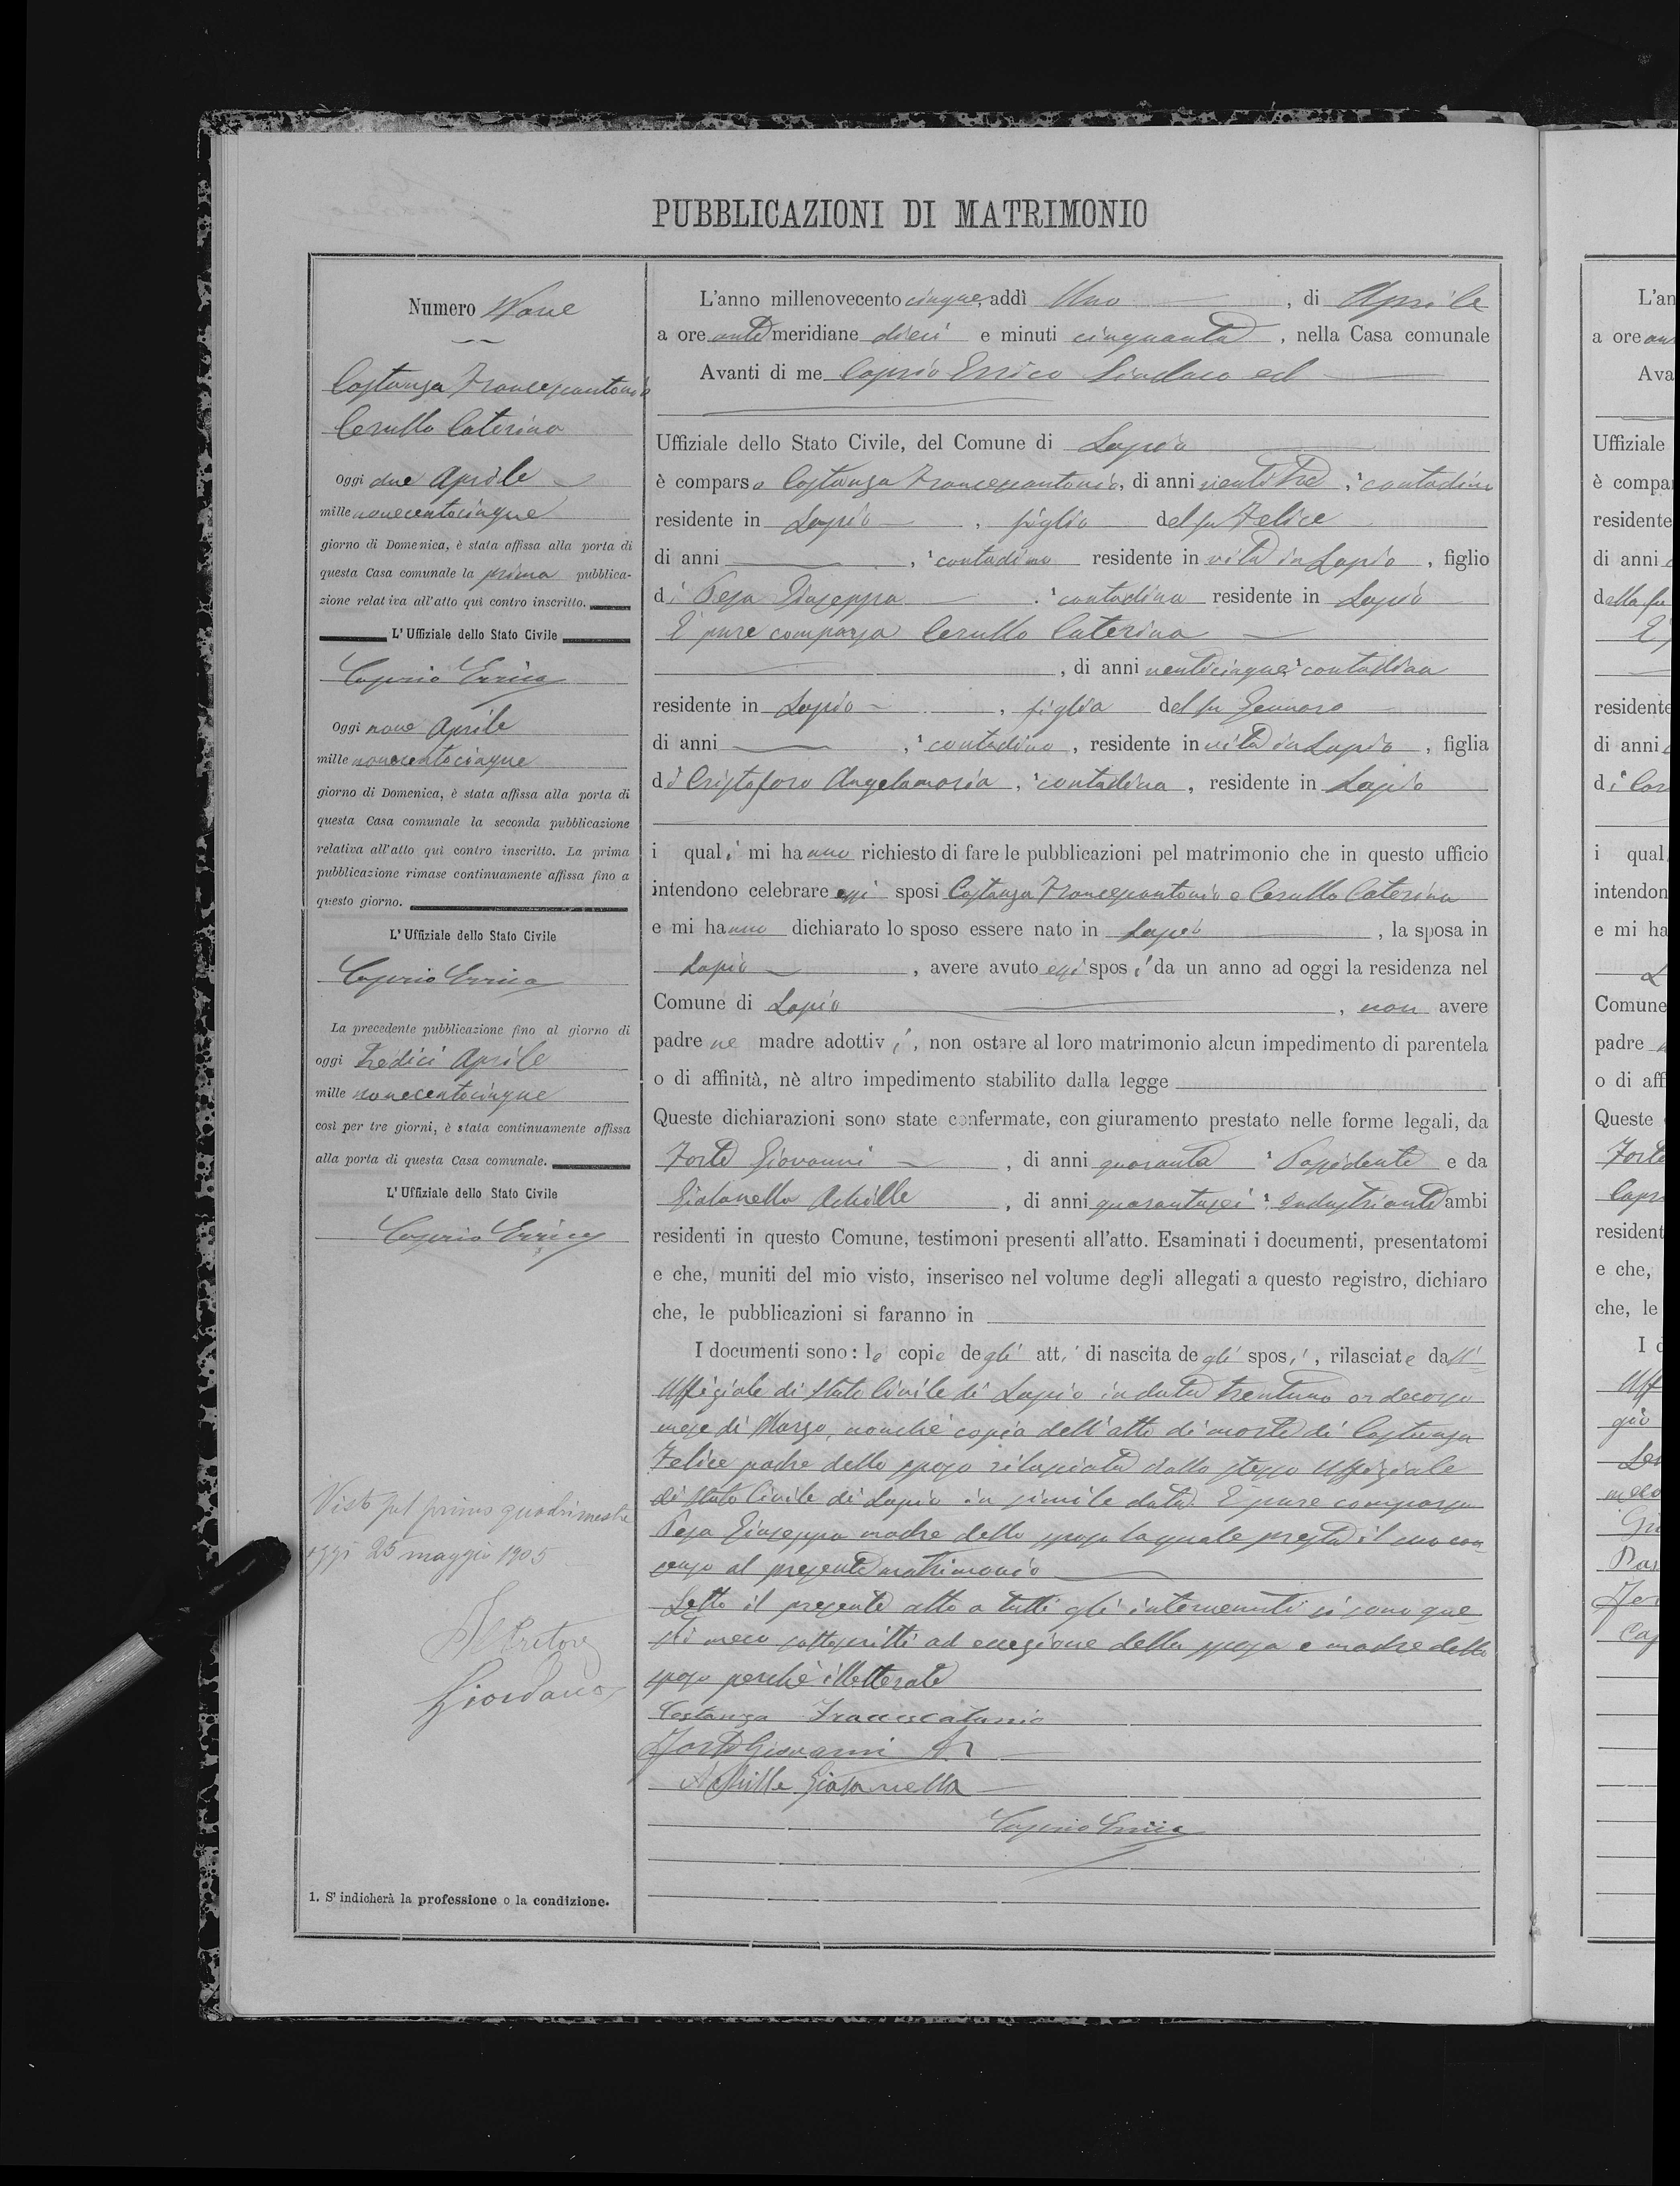 PUBBLICAZIONI DI MATRIMONIO
Numero Nove
Costanza Francescantonio
Cerullo Caterina
Oggi due Aprile
mille novecentocinque
giorno di Domenica, è stata affissa alla porta di
questa Casa comunale la prima pubblica-
zione relativa all'atto quì contro inscritto.
L'Uffiziale dello Stato Civile
Caprio Errico
Oggi nove Aprile
mille novecentocinque
giorno di Domenica, è stata affissa alla porta di
questa Casa comunale la seconda pubblicazione
relativa all'atto quì contro inscritto. La prima
pubblicazione rimase continuamente affissa fino a
questo giorno.
L'Uffiziale dello Stato Civile
Caprio Errico
La precedente pubblicazione fino al giorno di
oggi tredici Aprile
mille novecentocinque
così per tre giorni, è stata continuamente affissa
alla porta di questa Casa comunale.
L'Uffiziale dello Stato Civile
Caprio Errico
Visto pel primo quadrimestre
oggi 25 maggio 1905
Il Pretore
Giordano
1. S'indicherà la professione o la condizione.
L'anno millenovecento cinque, addì Uno, di Aprile
a ore antimeridiane dieci e minuti cinquanta, nella Casa comunale
Avanti di me Caprio Errico Sindaco ed
Uffiziale dello Stato Civile, del Comune di Lapio
è comparso Costanza Francescantonio, di anni ventitre, ¹ contadino
residente in Lapio, figlio del fu Felice
di anni , ¹ contadino residente in vita in Lapio, figlio
di Pesa Giuseppa ¹ contadina residente in Lapio
È pure comparsa Cerullo Caterina
, di anni venticinque ¹ contadina
residente in Lapio, figlia del fu Gennaro
di anni , ¹ contadino, residente in vita in Lapio, figlia
di Cristoforo Angelamaria, ¹ contadina, residente in Lapio
i quali mi hanno richiesto di fare le pubblicazioni pel matrimonio che in questo ufficio
intendono celebrare essi sposi Costanza Francescantonio e Cerullo Caterina
e mi hanno dichiarato lo sposo essere nato in Lapio, la sposa in
Lapio, avere avuto essi sposi da un anno ad oggi la residenza nel
Comune di Lapio, non avere
padre ne madre adottivi, non ostare al loro matrimonio alcun impedimento di parentela
o di affinità, nè altro impedimento stabilito dalla legge
Queste dichiarazioni sono state confermate, con giuramento prestato nelle forme legali, da
Forte Giovanni, di anni quaranta ¹ Possidente e da
Gialanella Achille, di anni quarantasei ¹ industriante ambi
residenti in questo Comune, testimoni presenti all'atto. Esaminati i documenti, presentatomi
e che, muniti del mio visto, inserisco nel volume degli allegati a questo registro, dichiaro
che, le pubblicazioni si faranno in
I documenti sono: le copie degli atti di nascita degli sposi, rilasciate dall'
Uffiziale di Stato Civile di Lapio in data trentuno or decorso
mese di Marzo, nonchè copia dell'atto di morte di Costanza
Felice padre dello sposo rilasciata dallo stesso Uffiziale
di Stato Civile di Lapio in simile data. È pure comparsa
Pesa Giuseppa madre dello sposo la quale presta il suo con-
senso al presente matrimonio
Letto il presente atto a tutti gli intervenuti si sono que-
sti meco sottoscritti ad eccezione della sposa e madre dello
sposo perchè illetterate
Costanza Francescatonio
Forte Giovanni
Achille Gialanella
Caprio Errico
L'an
a ore an
Ava
Uffiziale
è compar
residente
di anni
della fu
residente
di anni
di
i qual
intendon
e mi ha
Comune
padre
o di aff
Queste
Forte
resident
e che,
che, le
I d
Uff